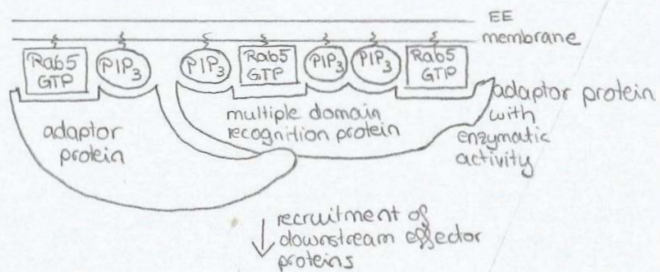 EE
membrane
Rab5
GTP
PIP3
PIP3
Rab5
GTP
PIP3
PIP3
Rab5
GTP
adaptor
protein
multiple domain
recognition protein
adaptor protein
with
enzymatic
activity
recruitment of
downstream effector
proteins